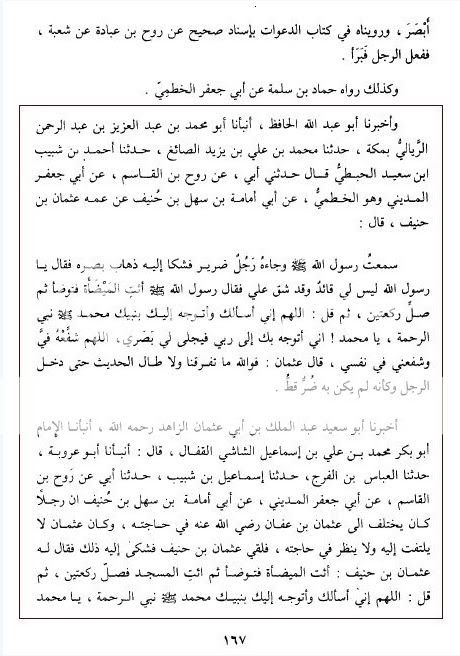 أَبْصَرَ ، ورويناه في كتاب الدعوات بإسناد صحيح عن روح بن عبادة عن شعبة ،
ففعل الرجل فَبَرَأ .
وكذلك رواه حماد بن سلمة عن أبي جعفر الخطميّ .
وأخبرنا أبو عبد الله الحافظ ، أنبأنا أبو محمد بن عبد العزيز بن عبد الرحمن
الرَّياليُّ بمكة ، حدثنا محمد بن علي بن يزيد الصائغ ، حدثنا أحمد بن شبيب
ابن سعيد الحبطيُّ قال حدثني أبي ، عن روح بن القاسم ، عن أبي جعفر
المديني وهو الخطميُّ ، عن أبي أمامة بن سهل بن حُنيف عن عمه عثمان بن
حنيف ، قال :
سمعتُ رسول الله ﷺ وجاءهُ رَجُلٌ ضرير فشكا إليه ذهاب بصره فقال يا
رسول الله ليس لي قائدٌ وقد شق علي فقال رسول الله ﷺ أئتِ المَيْضَأَة فتوضأ ثم
صلِّ ركعتين ، ثم قل : اللهم إني أسألك وأتوجه إليك بنبيك محمد ﷺ نبي
الرحمة ، يا محمد ! اني أتوجه بك إلى ربي فيجلى لي بَصَري، اللهم شفِّعْهُ فيَّ
وشفعني في نفسي ، قال عثمان : فوالله ما تفرقنا ولا طال الحديث حتى دخل
الرجل وكأنه لم يكن به ضُرٌّ قطُّ .
أخبرنا أبو سعيد عبد الملك بن أبي عثمان الزاهد رحمه الله ، أنبأنا الإمام
أبو بكر محمد بن علي بن إسماعيل الشاشي القفال ، قال : أنبأنا أبو عروبة ،
حدثنا العباس بن الفرج، حدثنا إسماعيل بن شبيب ، حدثنا أبي عن رَوح بن
القاسم ، عن أبي جعفر المديني ، عن أبي أمامة بن سهل بن حُنيف ان رجلًا
كان يختلف الى عثمان بن عفان رضي الله عنه في حاجته ، وكان عثمان لا
يلتفت إليه ولا ينظر في حاجته ، فلقي عثمان بن حنيف فشكى إليه ذلك فقال له
عثمان بن حنيف : أئت الميضأة فتوضأ ثم ائتِ المسجد فصلّ ركعتين ، ثم
قل : اللهم إني أسألك وأتوجه إليك بنبيك محمد ﷺ نبي الرحمة ، يا محمد
١٦٧